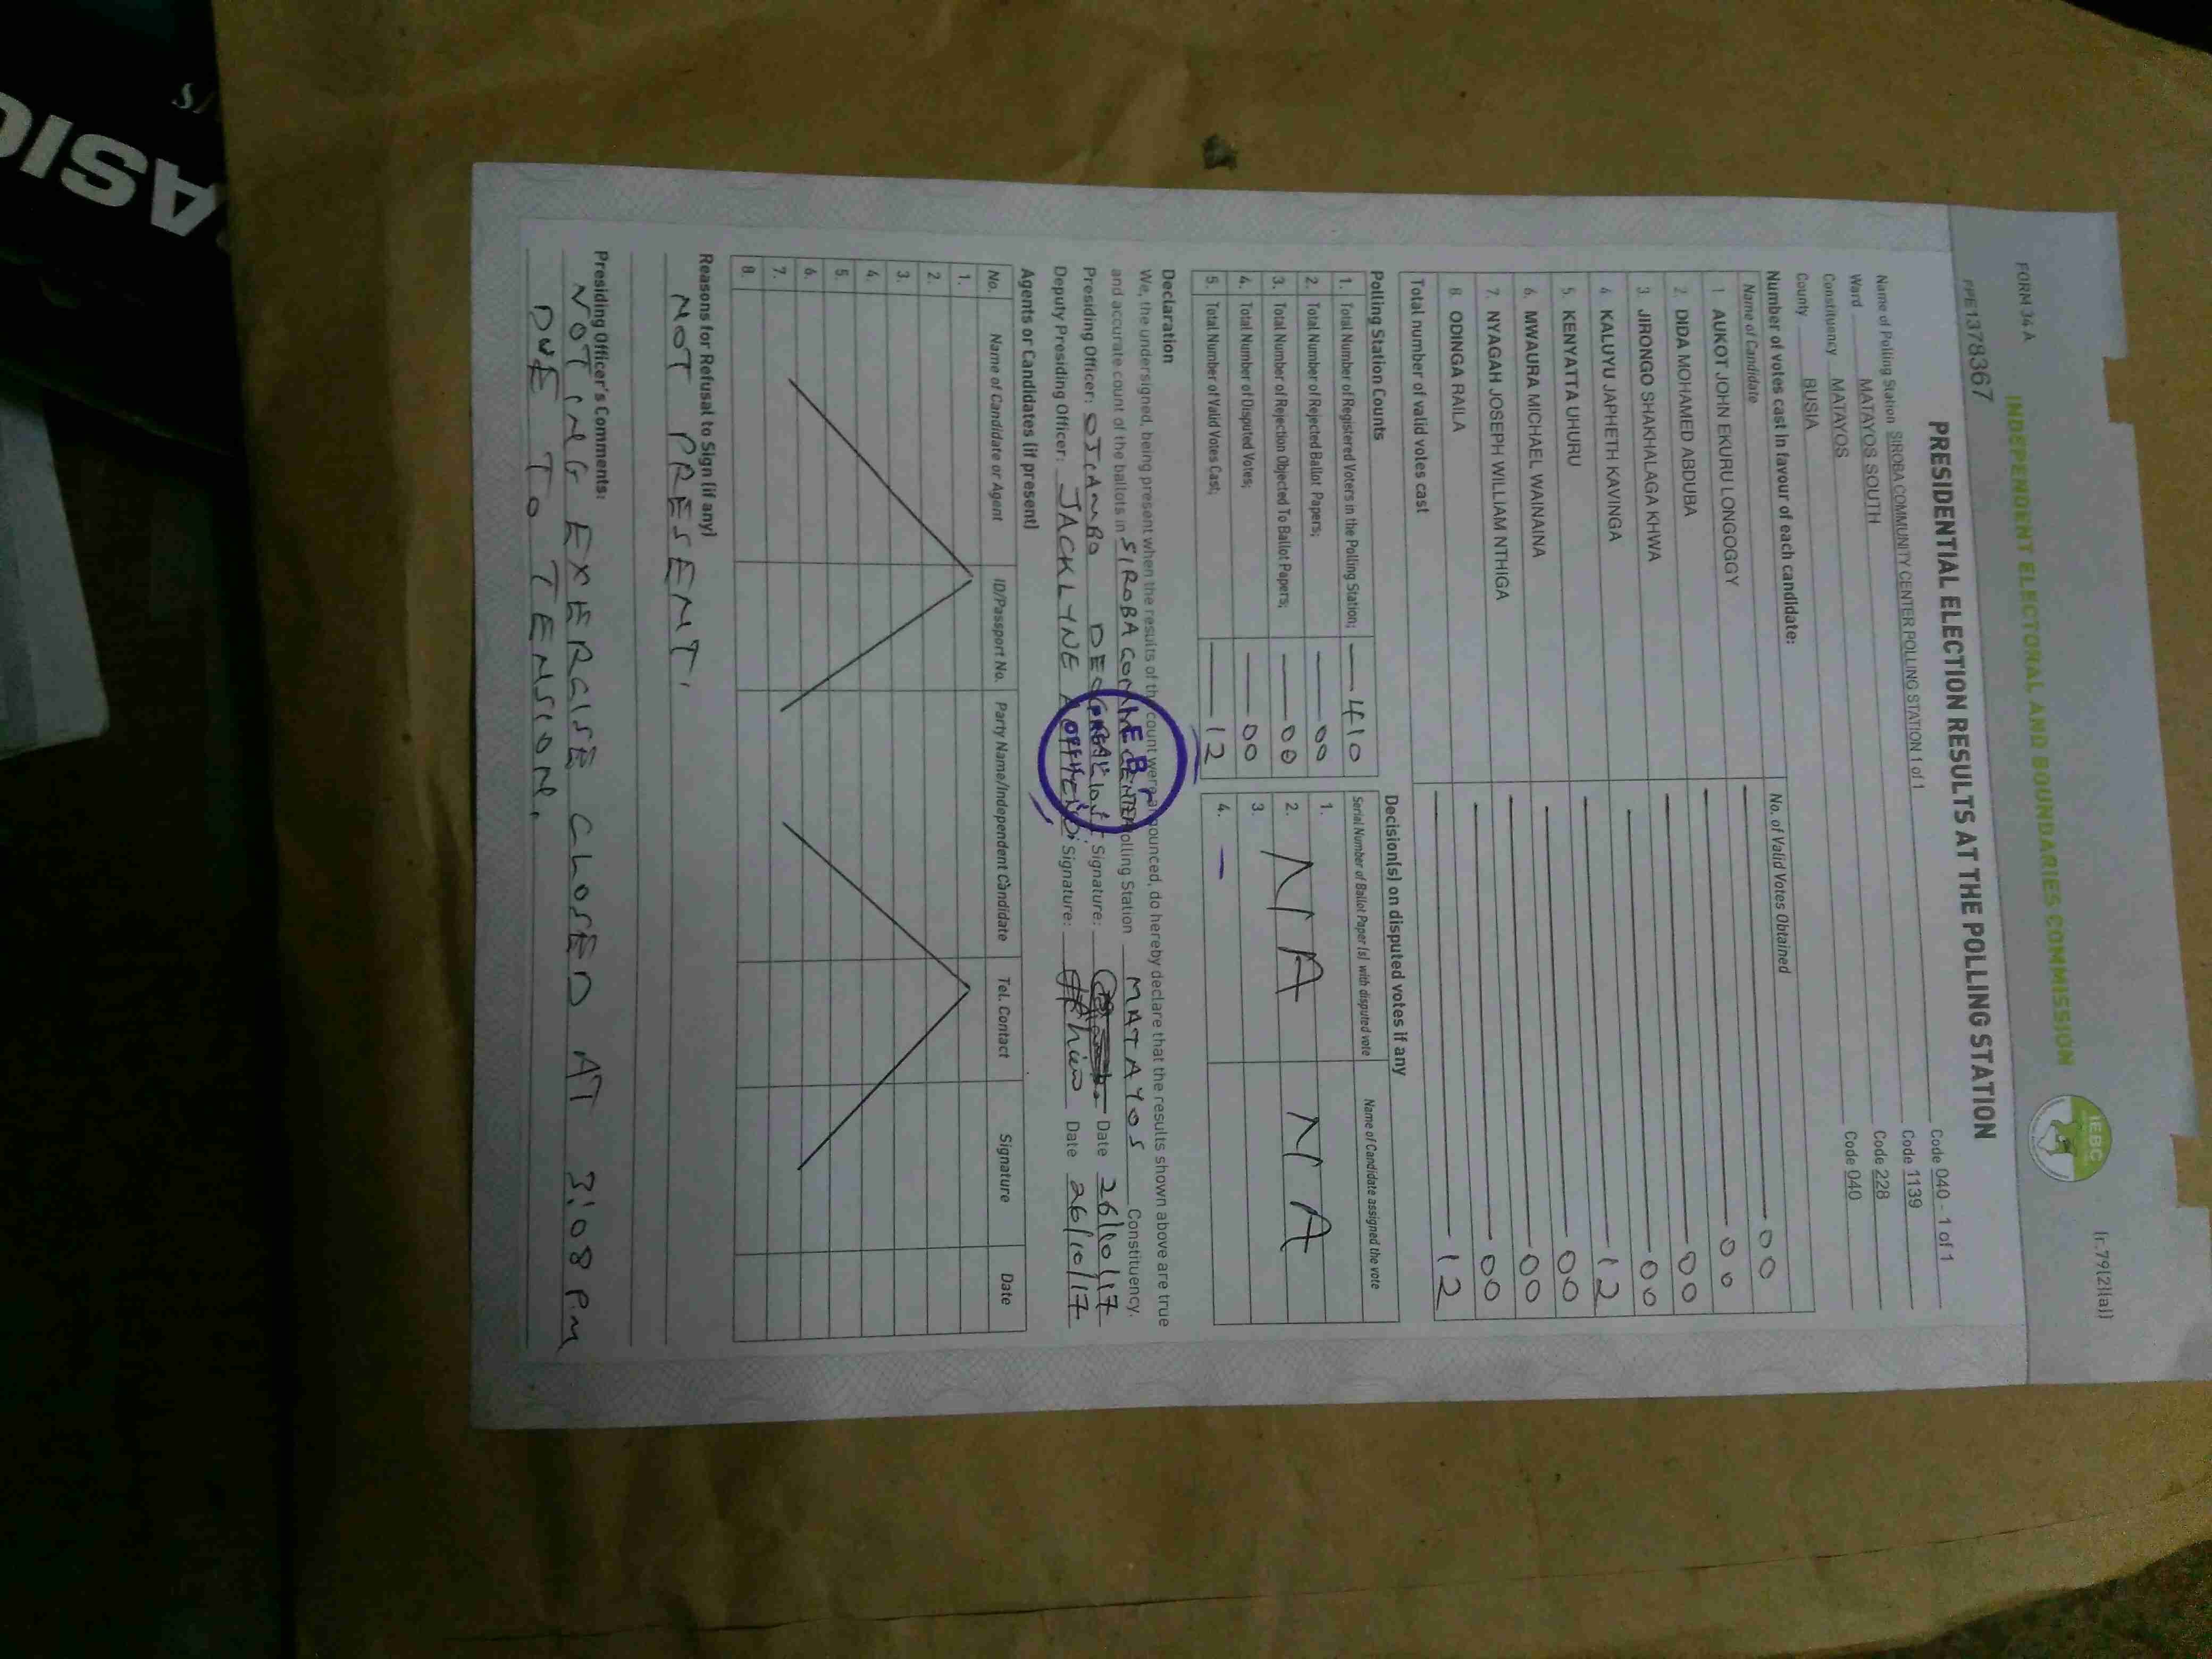 FORM 34A
(r.79(2)(a))
INDEPENDENT ELECTORAL AND BOUNDARIES COMMISSION
IEBC
PRESIDENTIAL ELECTION RESULTS AT THE POLLING STATION
Name of Polling Station SIROBA COMMUNITY CENTER POLLING STATION 1 of 1 Code 040 - 1 of 1
Ward MATAYOS SOUTH Code 1139
Constituency MATAYOS Code 228
County BUSIA Code 040
Number of votes cast in favour of each candidate:
Name of Candidate No. of Valid Votes Obtained
1 AUKOT JOHN EKURU LONGOGGY 00
2. DIDA MOHAMED ABDUBA 00
3. JIRONGO SHAKHALAGA KHWA 00
4. KALUYU JAPHETH KAVINGA 00
5. KENYATTA UHURU 12
6. MWAURA MICHAEL WAINAINA 00
7. NYAGAH JOSEPH WILLIAM NTHIGA 00
8. ODINGA RAILA 00
Total number of valid votes cast 12
Polling Station Counts
1. Total Number of Registered Voters in the Polling Station; 410
2. Total Number of Rejected Ballot Papers; 00
3. Total Number of Rejection Objected To Ballot Papers; 00
4. Total Number of Disputed Votes; 00
5. Total Number of Valid Votes Cast; 12
Decision(s) on disputed votes if any
Serial Number of Ballot Paper (s) with disputed vote Name of Candidate assigned the vote
1.
2. N/A N/A
3.
4. —
Declaration
We, the undersigned, being present when the results of the count were announced, do hereby declare that the results shown above are true
and accurate count of the ballots in SIROBA COMM CENTER Polling Station MATAYOS Constituency.
Presiding Officer: OJIAMBO Signature: Date 26/10/17
Deputy Presiding Officer: JACKLYNE Signature: Date 26/10/17
Agents or Candidates (if present)
No. Name of Candidate or Agent ID/Passport No. Party Name/Independent Candidate Tel. Contact Signature Date
1.
2.
3.
4.
5.
6.
7.
8.
Reasons for Refusal to Sign (if any)
NOT PRESENT.
Presiding Officer's Comments:
NOTING EXERCISE CLOSED AT 3:08 PM
DUE TO TENSION.